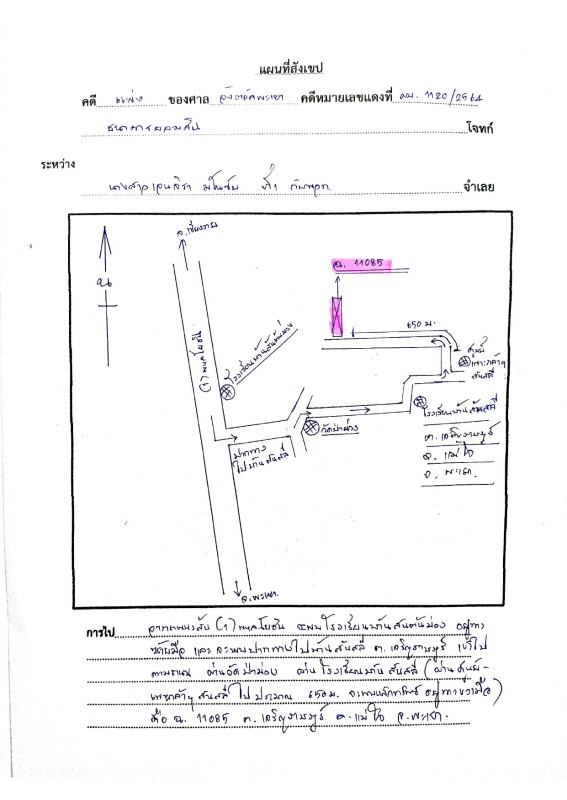 แผนที่สังเขป
คดี แพ่ง ของศาล จังหวัดพะเยา คดีหมายเลขแดงที่ ผบ. 1120/2564
ธนาคารออมสิน โจทก์
ระหว่าง
นางสาว มโนชัย ที่ 1 กับพวก จำเลย
จ.เชียงราย
น
ฉ. 11085
650 ม.
(1) พหลโยธิน
โรงเรียนบ้านสันต้นม่วง
ศูนย์
เพาะกล้าฯ
สันสลี
วัดป่าม่วง
ปากทาง
ไปบ้านสันสลี
โรงเรียนบ้านสันสลี
ต. เจริญราษฎร์
อ. แม่ใจ
จ. พะเยา
จ.พะเยา
การไป จากถนนสาย (1) พหลโยธิน จะพบโรงเรียนบ้านสันต้นม่วง อยู่ทาง
ซ้ายมือ และจะพบปากทางไปบ้านสันสลี ต. เจริญราษฎร์ เข้าไป
ตามถนน ผ่านวัดป่าม่วง ผ่านโรงเรียนบ้านสันสลี (ผ่านศูนย์-
เพาะกล้าฯ สันสลี ไปประมาณ 650 ม. จะพบหลักทรัพย์ อยู่ทางขวามือ)
คือ ฉ. 11085 ต. เจริญราษฎร์ อ. แม่ใจ จ.พะเยา.